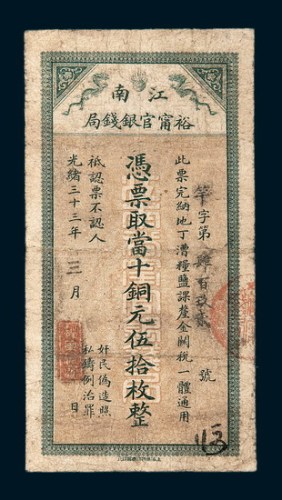 江南
裕甯官銀錢局
字第肆百號
此票完納地丁漕糧鹽課釐金關稅一體通用
憑票取當十銅元伍拾枚整
祗認票不認人
奸民偽造照
私鑄例治罪
光緒三十三年三月日